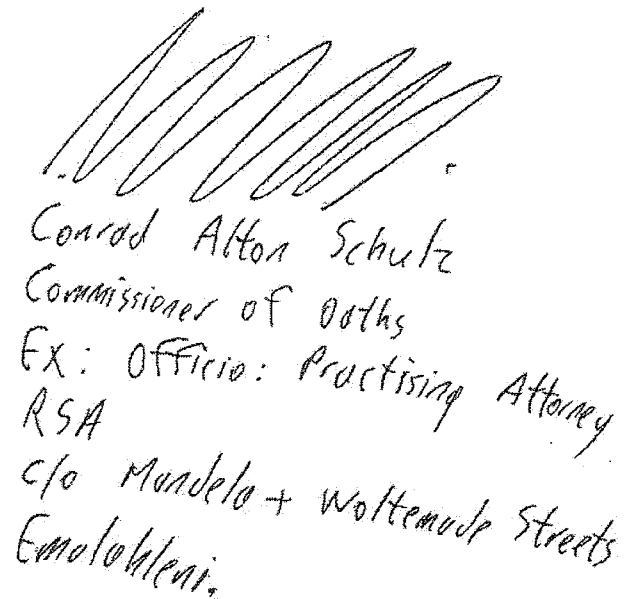 Conrad Alton Schulz
Commissioner of Oaths
Ex: Officio: Practising Attorney
RSA
c/o Mandela + Woltemade Streets
Emalahleni.